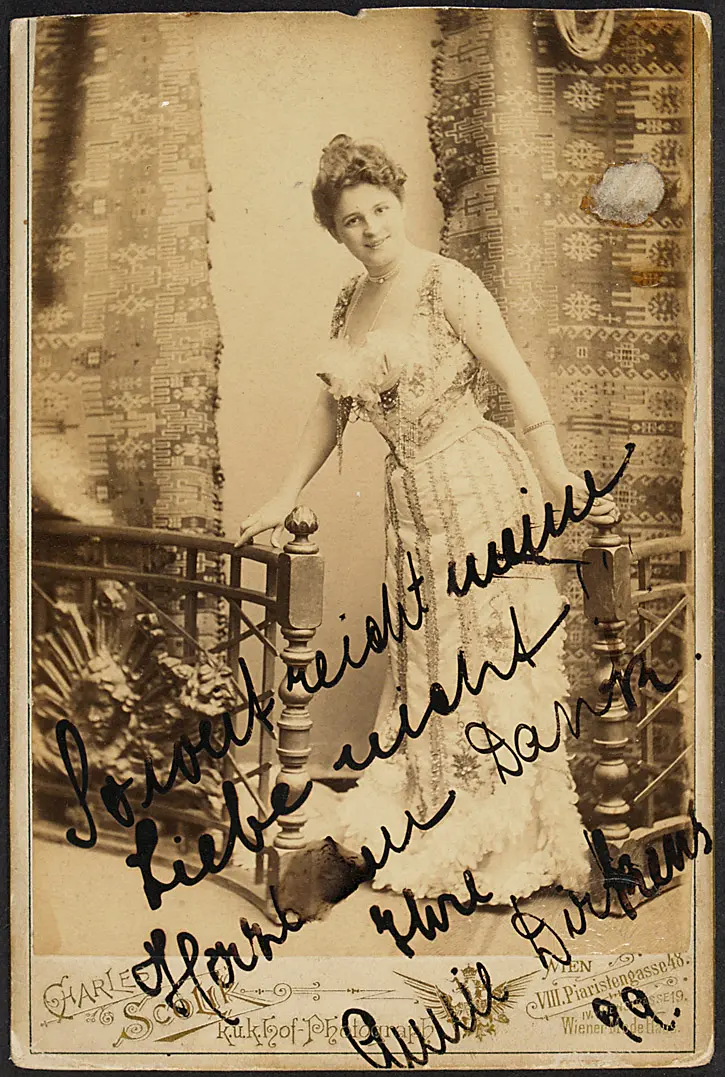 Soweit reicht meine
Liebe nicht!
Dank
Ihre
Annie Dirkens
99.
CHARLES
SCOLIK
k.u.k.Hof-Photograph
WIEN
VIII. Piaristengasse 48.
Wiener